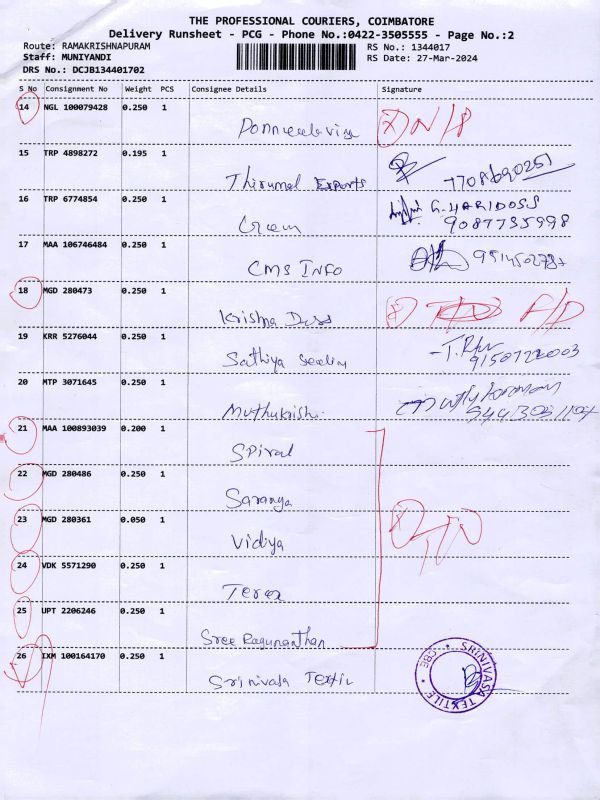 THE PROFESSIONAL COURIERS, COIMBATORE
Delivery Runsheet - PCG - Phone No.:0422-3505555 - Page No.:2
Route: RAMAKRISHNAPURAM RS No.: 1344017
Staff: MUNIYANDI RS Date: 27-Mar-2024
DRS No.: DCJB134401702
S No Consignment No Weight PCS Consignee Details Signature
14 NGL 100079428 0.250 1
15 TRP 4898272 0.195 1
Thirumal Exports
16 TRP 6774854 0.250 1 G.HARIDOSS
9087735998
17 MAA 106746484 0.250 1
CMS INFO
18 MGD 280473 0.250 1
Krishna Dass F/D
19 KRR 5276044 0.250 1
Sathiya
20 MTP 3071645 0.250 1
Muthukrish
21 MAA 100893039 0.200 1
Spiral
22 MGD 280486 0.250 1
Saranya
23 MGD 280361 0.050 1
Vidiya
24 VDK 5571290 0.250 1
25 UPT 2206246 0.250 1
Sree Ragunanthan
26 IXM 100164170 0.250 1
Srinivasa Textil
SRINIVASA TEXTILE * CBE *